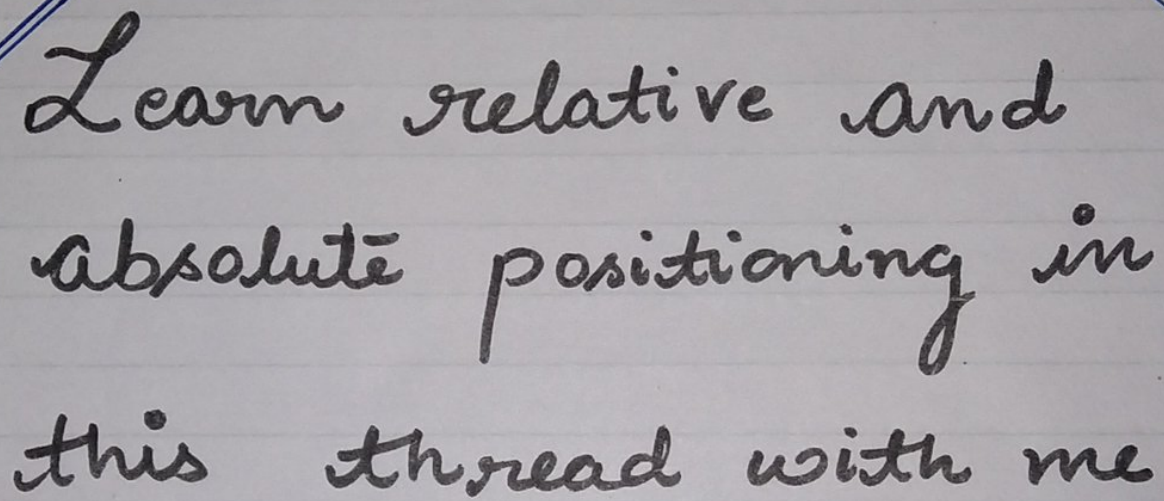 Learn relative and
absolute positioning in
this thread with me